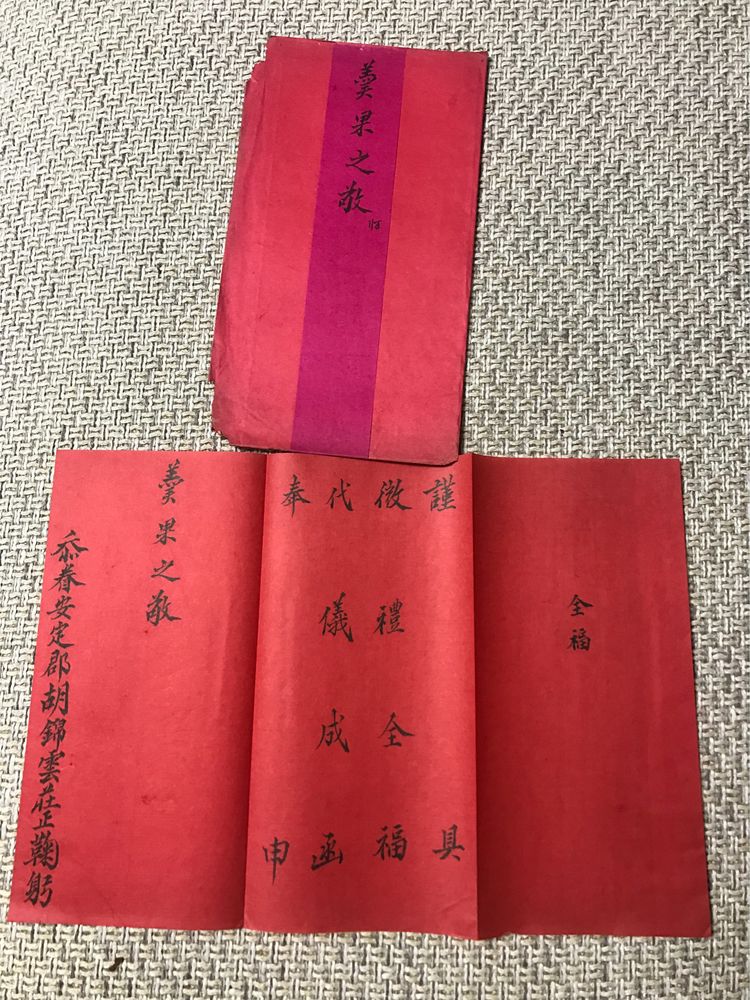 羹果之敬
全福
謹具
微禮全福
代儀成函
奉申
羹果之敬
忝眷安定郡胡錦雲莊正鞠躬